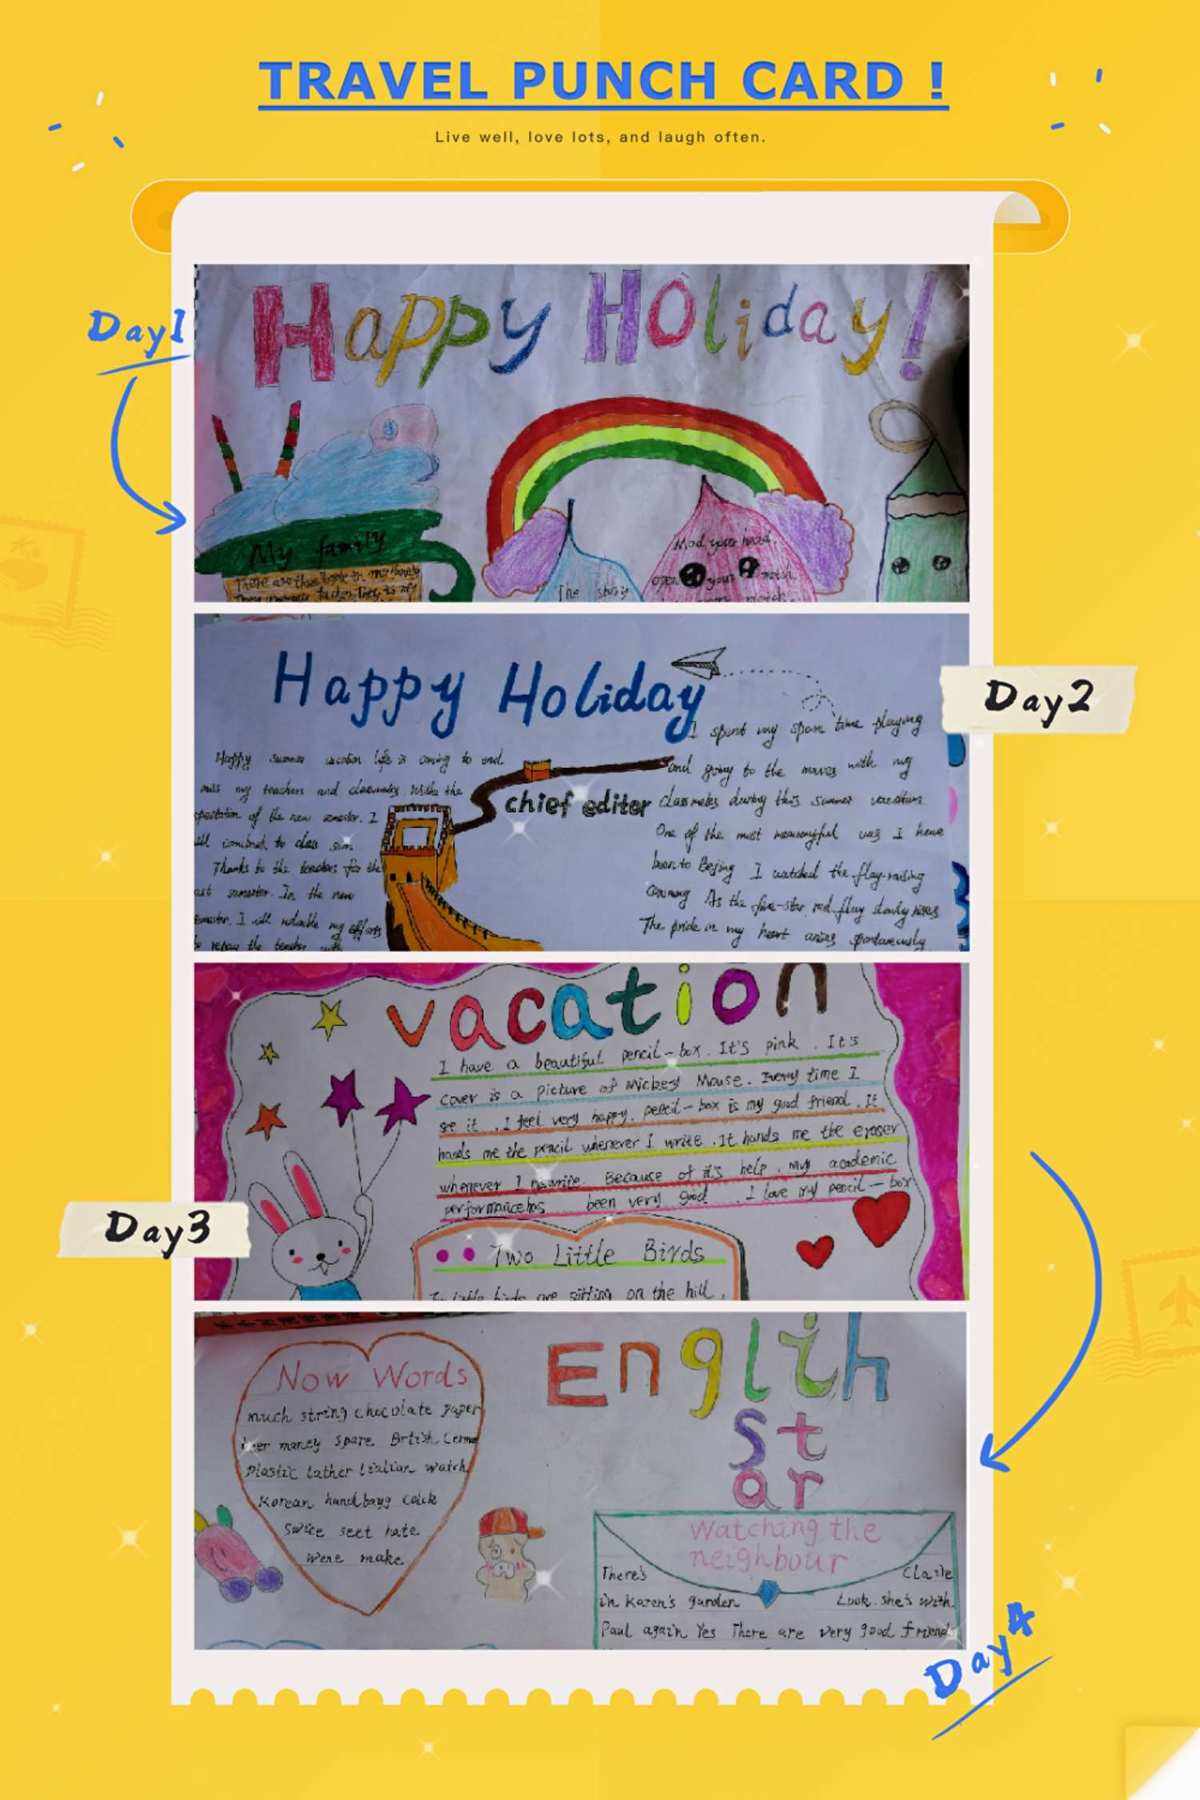 TRAVEL PUNCH CARD !
Live well, love lots, and laugh often.
Day1
Happy Holiday!
My family
The story
Mod your head.
open your
Day2
Happy Holiday
I spent my spare time playing
and going to the movies with my
classmates during this summer vacation
One of the most meaningful was I have
been to Beijing I watched the flag-raising
As the five-star red flag slowly rises
The pride in my heart arises spontaneously
Happy summer vacation life is coming to end.
miss my teachers and classmates With the
of the new semester. I
to class
Thanks to the teachers for the
semester. In the new
semester. I will my efforts
to repay the teacher with
chief editer
vacation
I have a beautiful pencil-box. It's pink. It's
cover is a picture of Mickey Mouse. Every time I
see it, I feel very happy. pencil-box is my good friend. It
hands me the pencil whenever I write. It hands me the eraser
whenever I Because of it's help, my academic
performancehas been very good. I love my pencil-box
Day3
Two Little Birds
birds are sitting on the hill,
Now Words
much string chocolate paper
money spare
Plastic watch
Korean
seet hate
were make
English
St
ar
Watching the
neighbour
There's
in Karen's garden Look. she's with
Paul again Yes There are very good friend
Day4